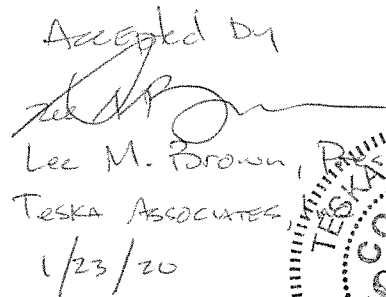 Accepted by
Lee M. Brown, Pres
Teska Associates,
1/23/20
TESKA
CO